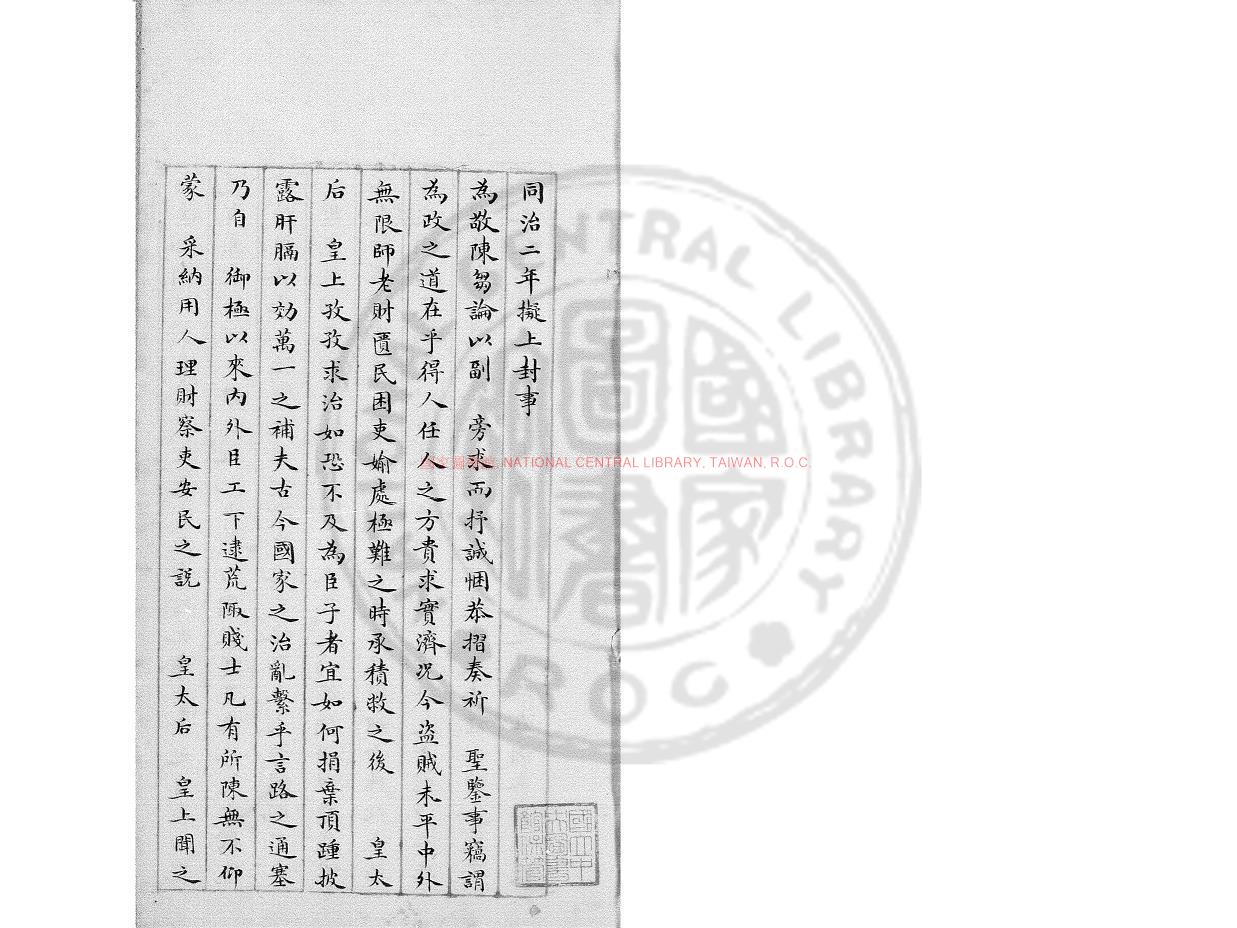 同治二年擬上封事
為敬陳芻論以副　旁求而抒誠悃恭摺奏祈　聖鑒事竊謂
為政之道在乎得人任人之方貴求實濟况今盜賊未平中外
無限師老財匱民困吏媮處極難之時承積救之後　皇太
后　皇上孜孜求治如恐不及為臣子者宜如何捐棄頂踵披
露肝膈以効萬一之補夫古今國家之治亂繫乎言路之通塞
乃自　御極以來内外臣工下逮荒陬賤士凡有所陳無不仰
蒙　采納用人理財察吏安民之說　皇太后　皇上聞之
國家圖書館 NATIONAL CENTRAL LIBRARY, TAIWAN, R.O.C.
CENTRAL LIBRARY
ROC
國家圖書
國立中央圖書館保管